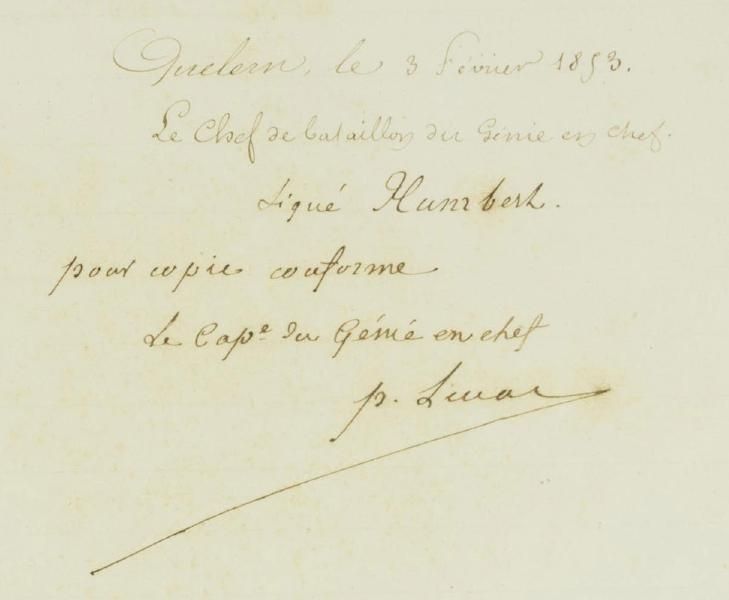 Quelern, le 3 Février 1853.
Le Chef de bataillon du Génie en chef.
Signé Humbert.
pour copie conforme
Le Cap.e du Génie en chef
p.